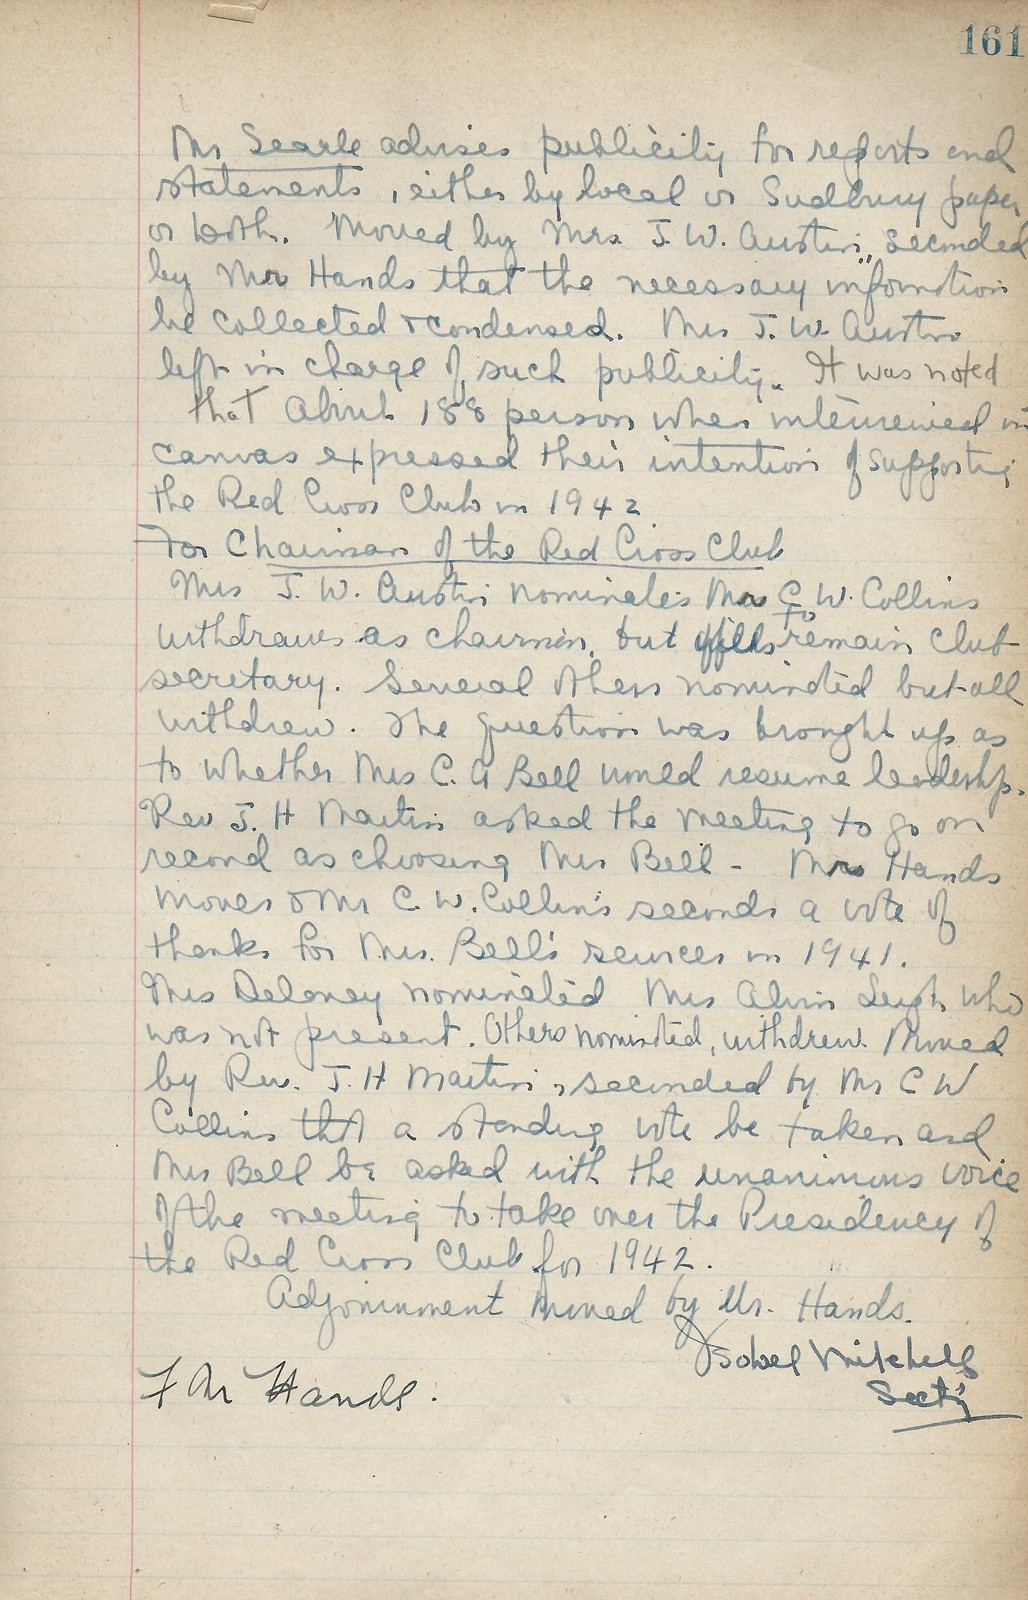 161
Mr Searle advises publicity for reports and
statements, either by local or Sudbury paper
or both. Moved by Mrs. J. W. Austin, seconded
by Mr Hands that the necessary information
be collected & condensed. Mrs J. W. Austin
left in charge of such publicity. It was noted
that about 188 person when interviewed in
canvas expressed their intention of supporting
the Red Cross Club in 1942
For Chairman of the Red Cross Club
Mrs J. W. Austin nominates Mr C W. Collins
withdraws as chairman, but offers to remain Club
secretary. Several others nominated but all
withdrew. The question was brought up as
to whether Mrs C. A Bell would resume leadership.
Rev J. H Martin asked the meeting to go on
record as choosing Mrs Bell - Mrs Hands
moves & Mr C. W. Collins seconds a vote of
thanks for Mrs. Bell's services in 1941.
Mrs Delaney nominated Mrs Alvin Leigh who
was not present. Others nominated, withdrew. Moved
by Rev. J. H Martin, seconded by Mr C W
Collins that a standing vote be taken and
Mrs Bell be asked with the unanimous voice
of the meeting to take over the Presidency of
the Red Cross Club for 1942.
Adjournment moved by Mr. Hands.
Isobel Mitchell
Sect'y
F M Hands.